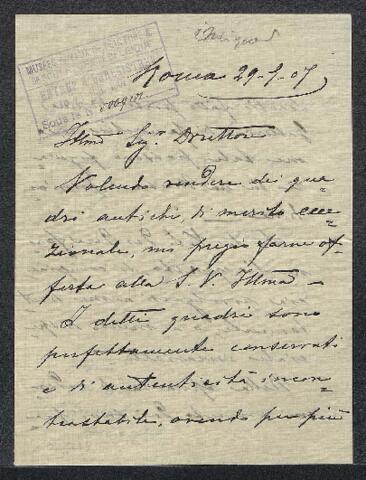 Roma 29-5-07
Illmo Sigr. Direttore
Volendo vendere dei qua-
dri antichi, di merito ecce-
zionale, mi pregio farne of-
ferta alla S. V. Illma —
I detti quadri sono
perfettamente conservati
e di autenticità incon-
trastabile, avendo per più